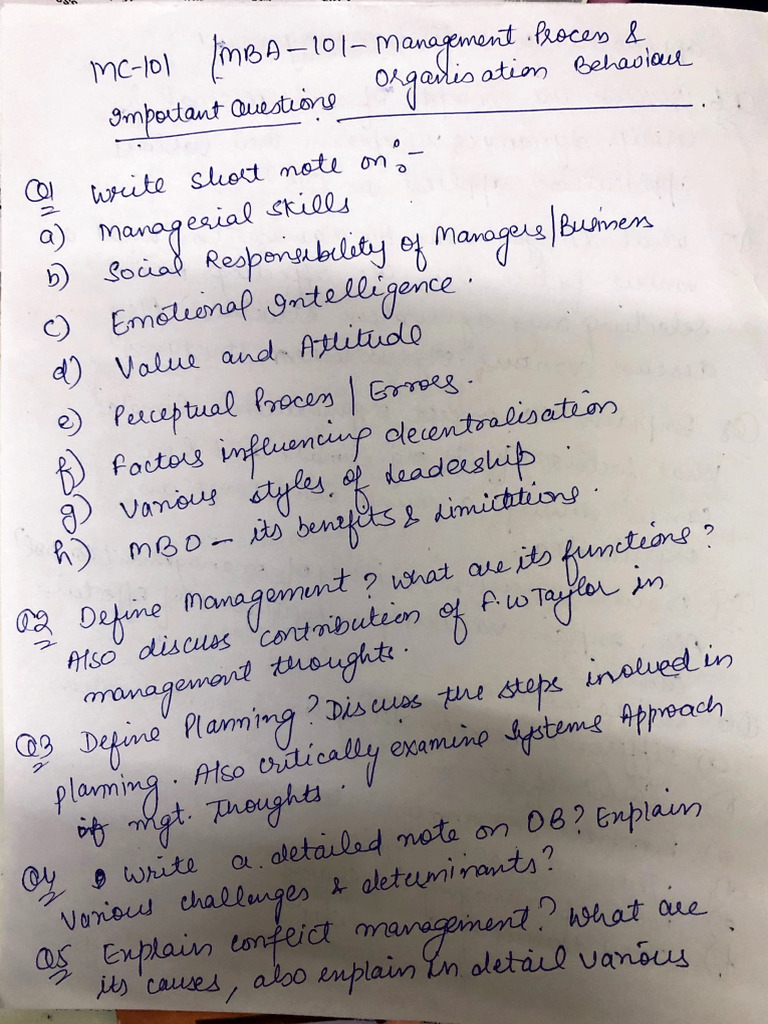 MC-101 / MBA-101- Management Process &
Organisation Behaviour
Important Questions
Q1 Write short note on:-
a) Managerial Skills
b) Social Responsibility of Managers/Business
c) Emotional Intelligence.
d) Value and Attitude
e) Perceptual Process / Errors.
f) Factors influencing decentralisation
g) Various styles of leadership.
h) MBO - its benefits & Limitations.
Q2 Define Management? What are its functions?
Also discuss contribution of F.W Taylor in
management thoughts.
Q3 Define Planning? Discuss the steps involved in
planning. Also critically examine Systems Approach
of mgt. Thoughts.
Q4 Write a detailed note on OB? Explain
various challenges & determinants?
Q5 Explain conflict management? What are
its causes, also explain in detail various